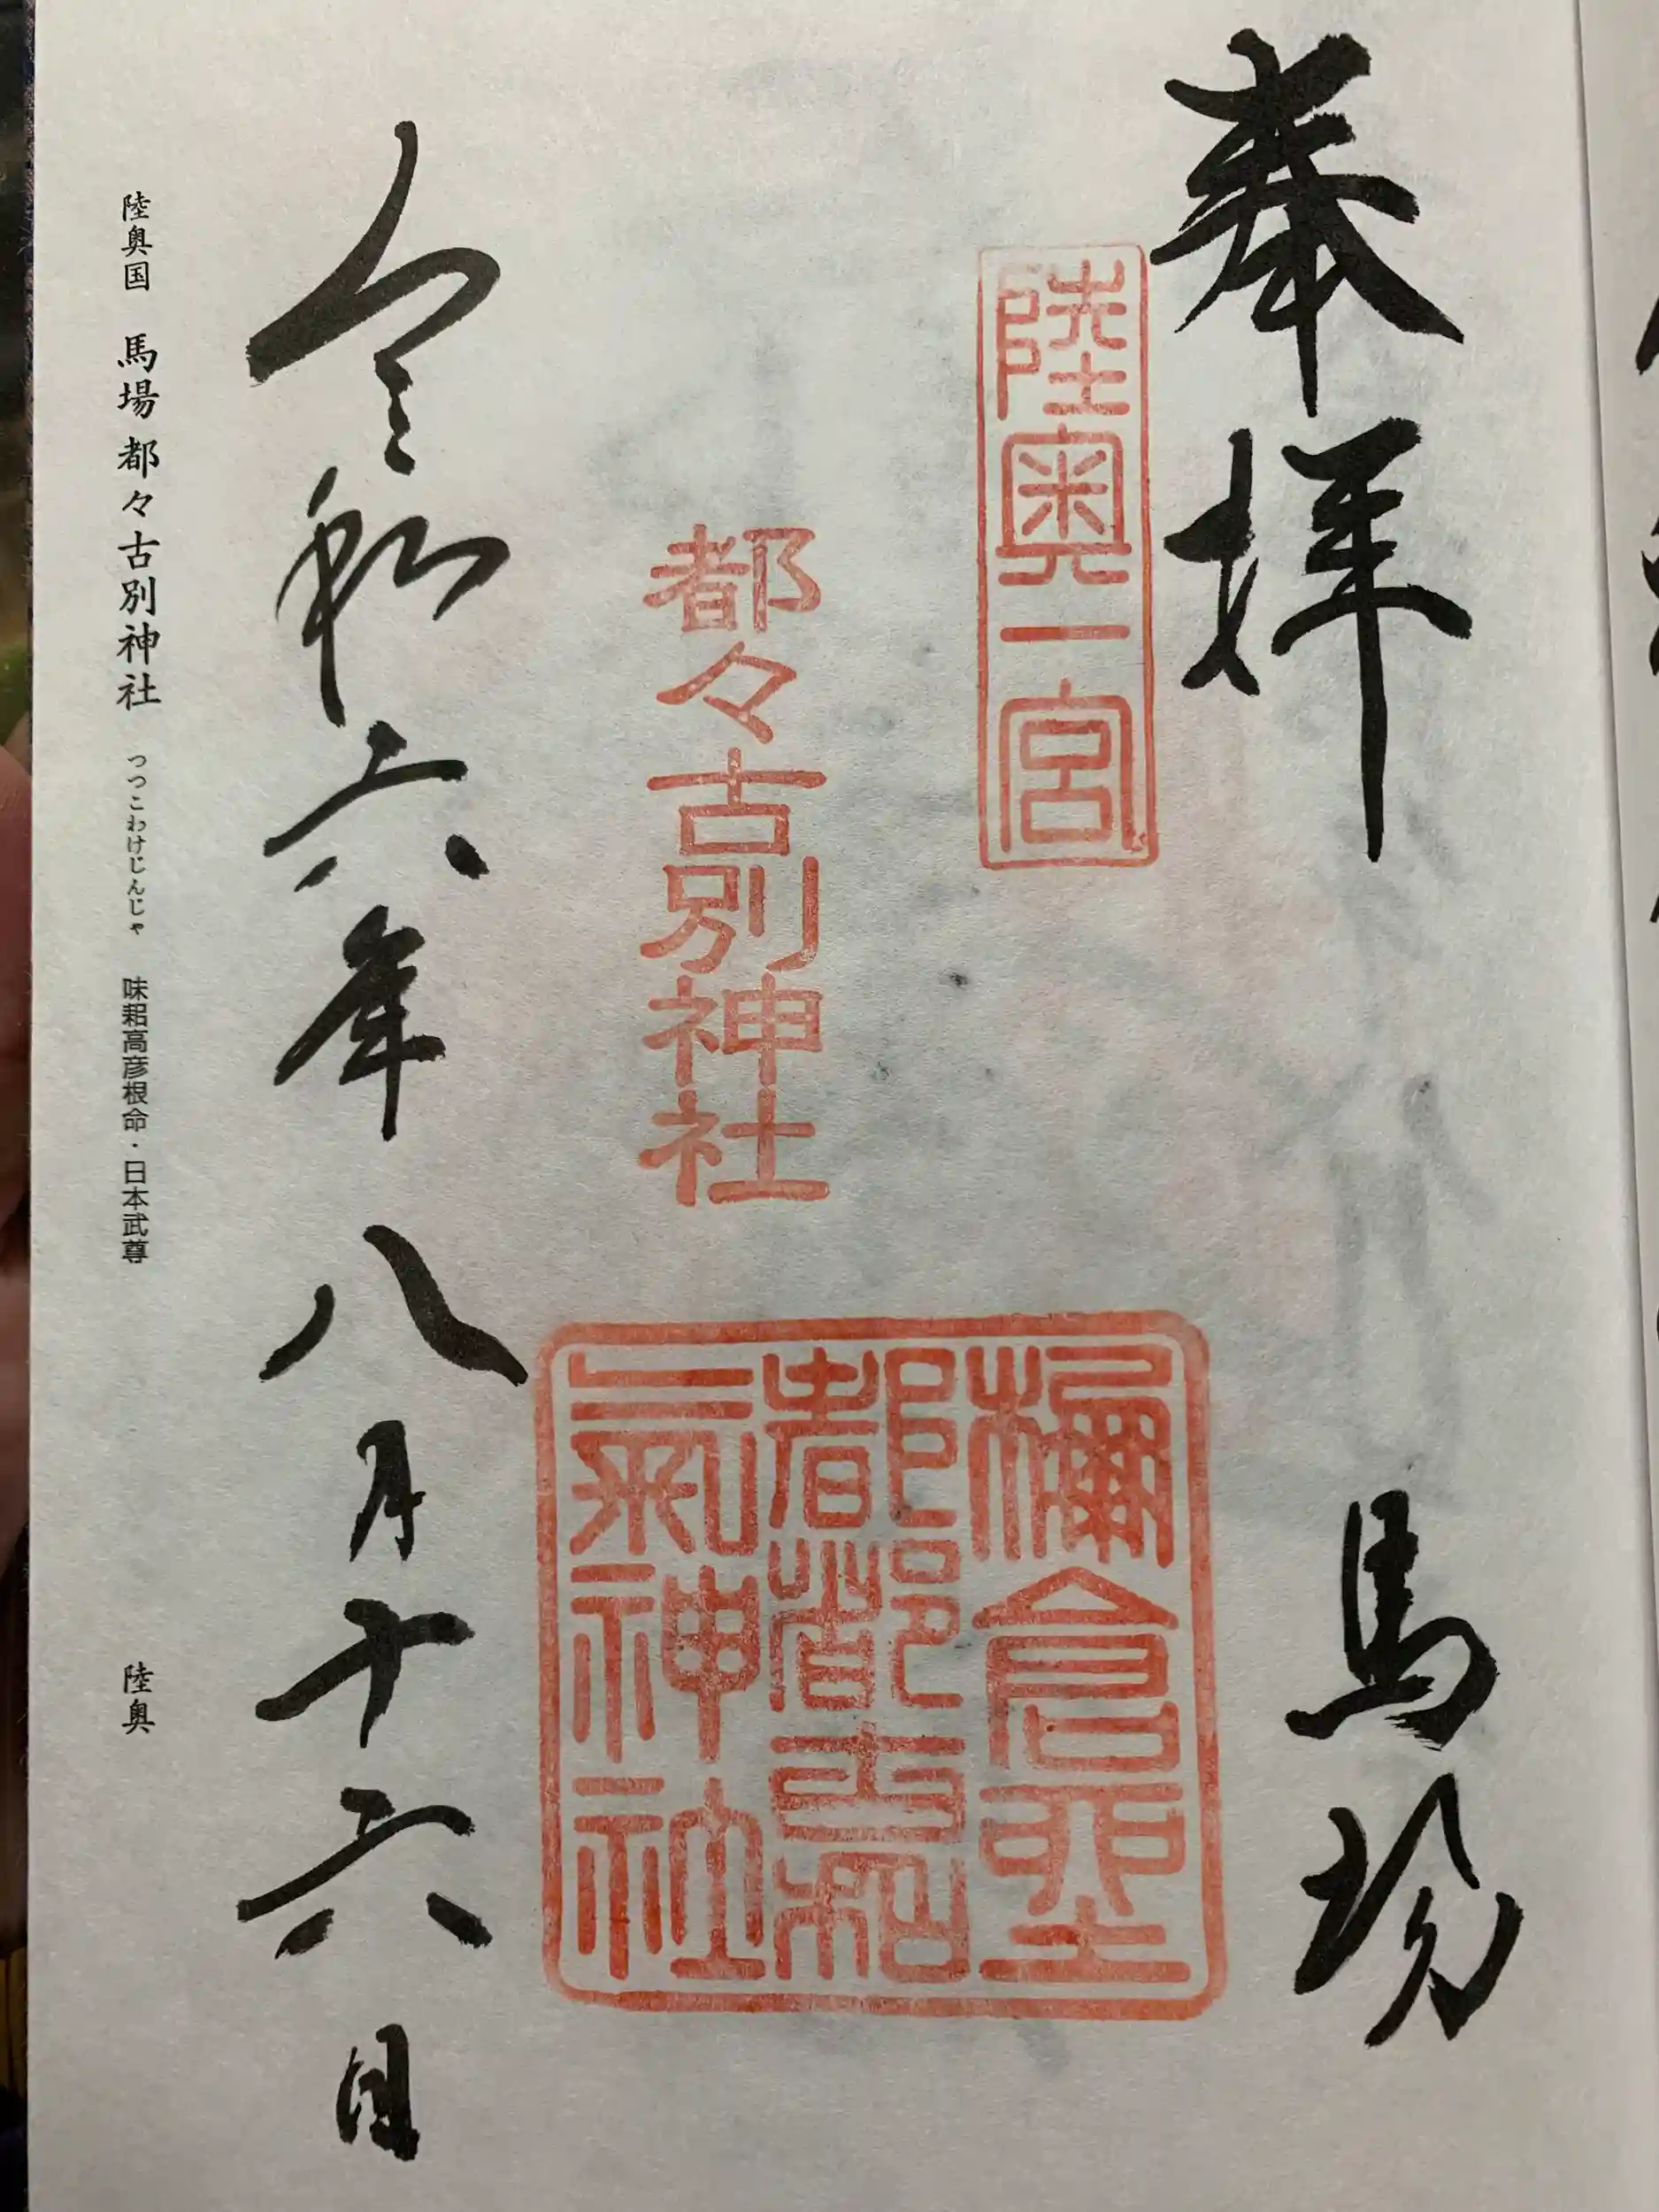 奉拝
馬場
陸奥一宮
都々古別神社
令和六年八月十六日
陸奥国 馬場都々古別神社 つつこわけじんじゃ 味耜高彦根命・日本武尊 陸奥